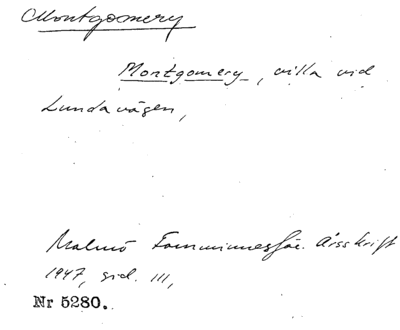 Montgomery
Montgomery, villa vid
Lundavägen,
Malmö Fornminnesför. Årsskrift
1947, sid. 111,
Nr 5280.